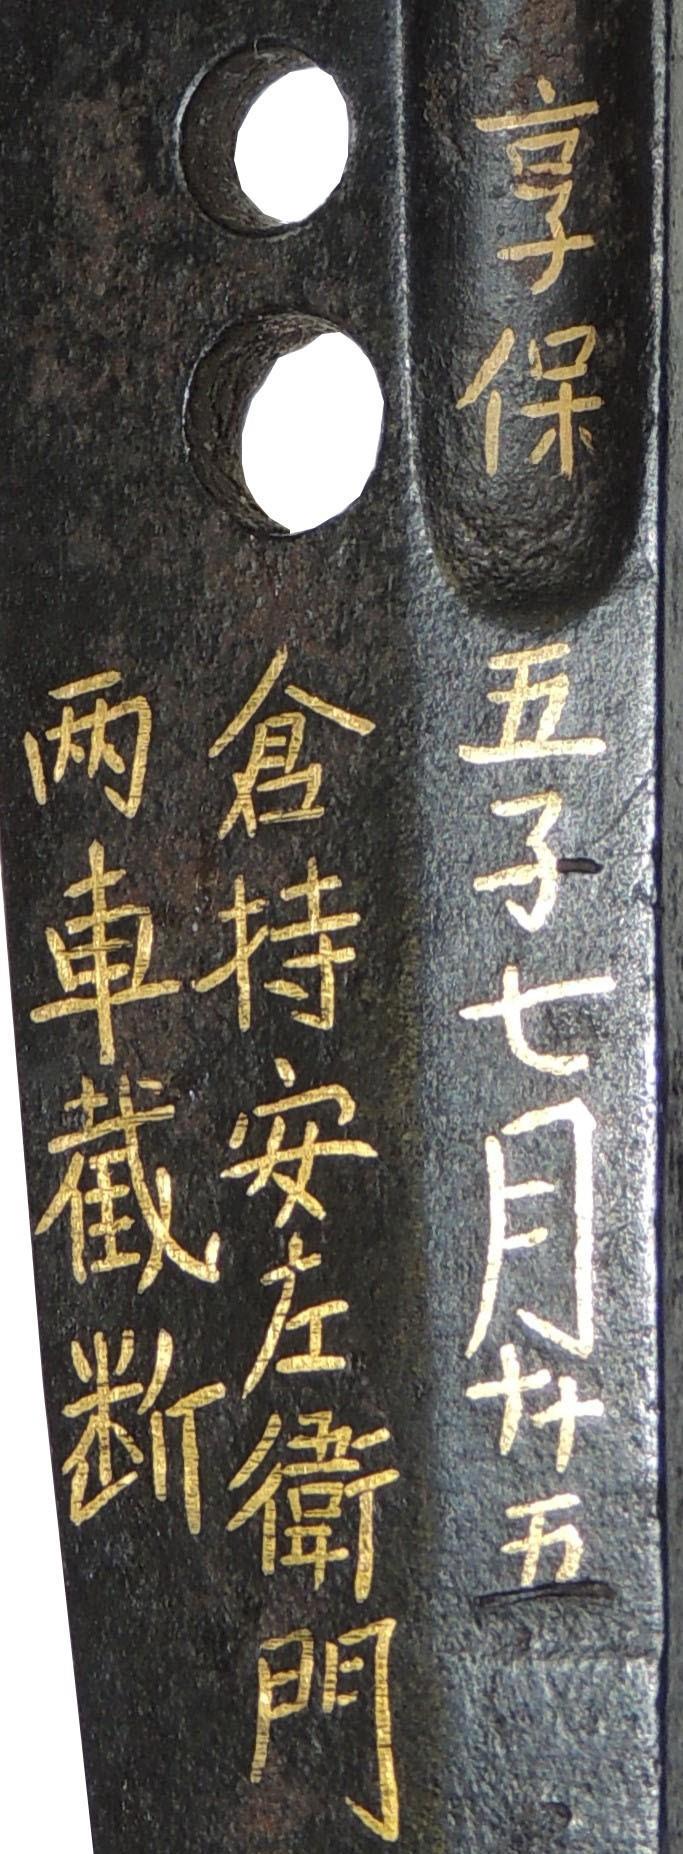 享保五子七月廿五
倉持安左衛門
両車截断